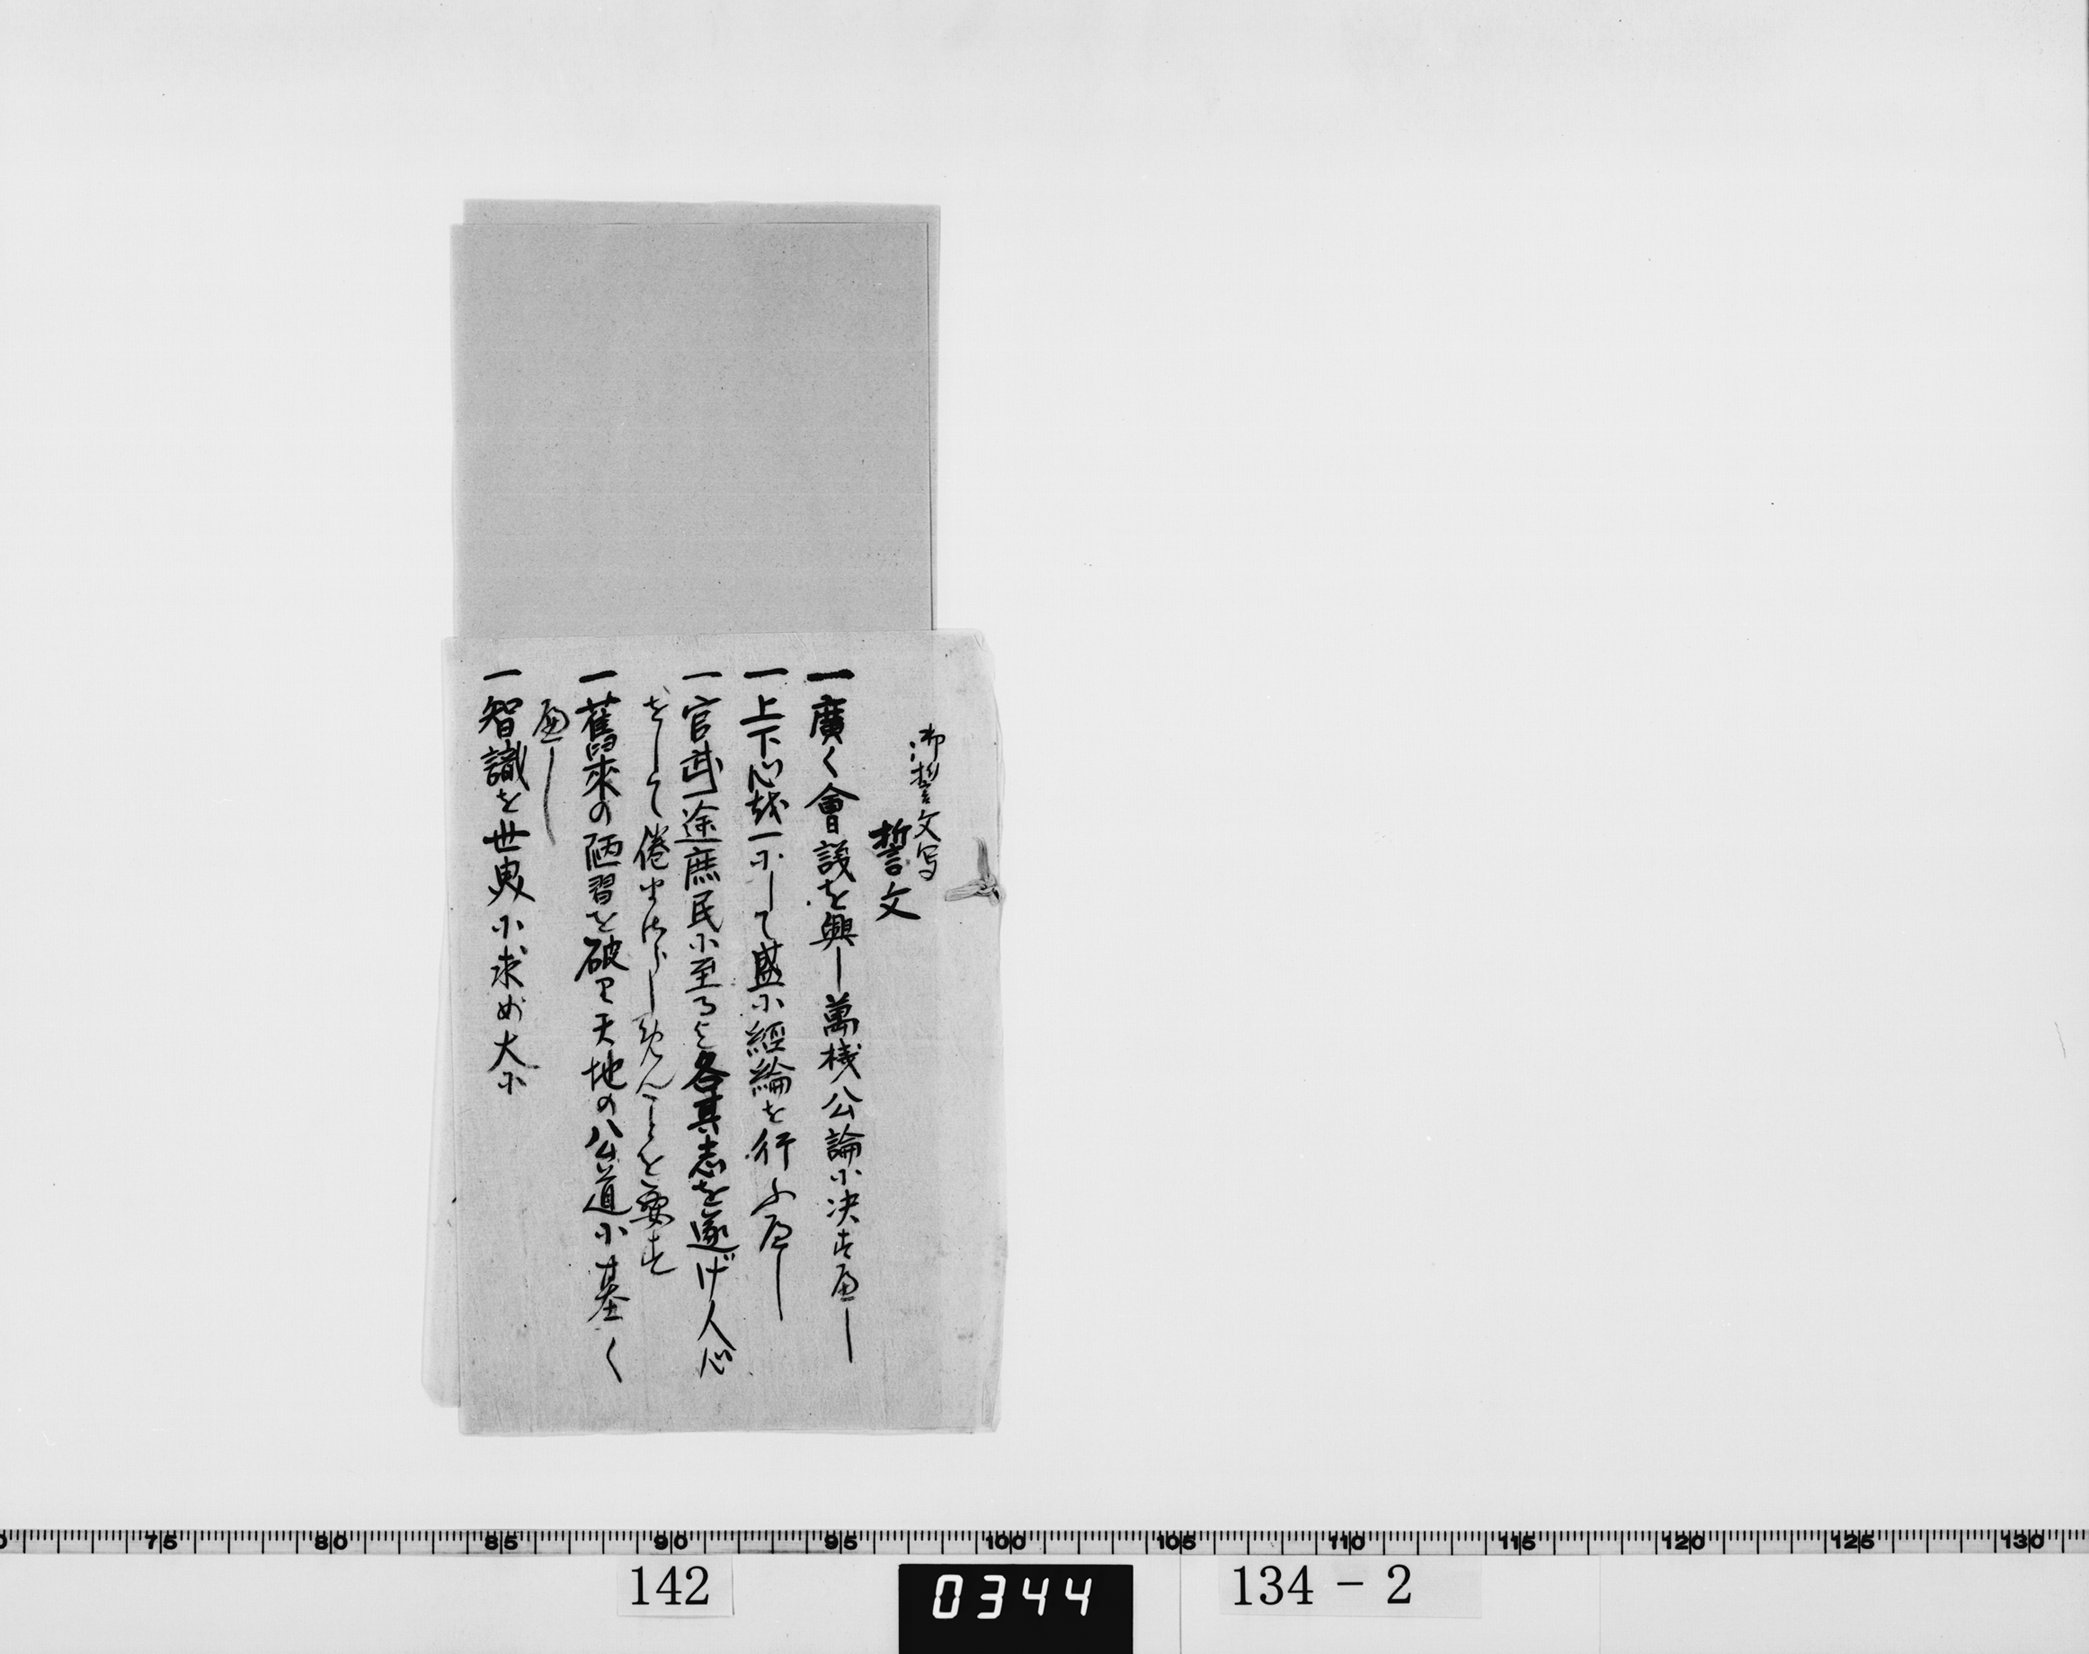 御誓文写
誓文
一廣く會議を興し萬機公論に決すべし
一上下心を一にして盛に經綸を行ふべし
一官武一途庶民に至る迄各其志を遂げ人心
をして倦まざらしめんことを要す
一舊來の陋習を破り天地の公道に基く
べし
一智識を世界に求め大に
75 80 85 90 95 100 105 110 115 120 125 130
142 0344 134-2